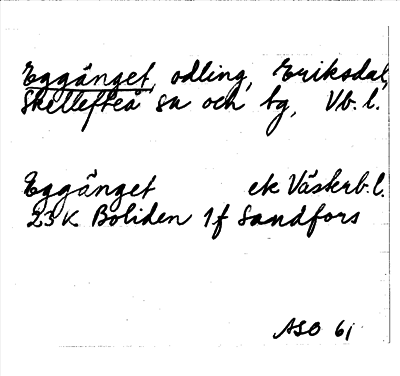 Eggänget, odling, Eriksdal,
Skellefteå sn och tg, Vb. l.
Eggänget ek Västerb. l.
23 K Boliden 1 f Sandfors
ASO 61